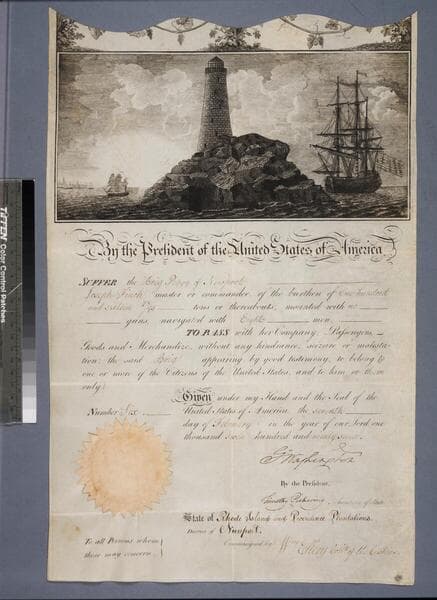 TIFFEN Color Control Patches
By the President of the United States of America
SUFFER the Brig of Newport
Joseph master or commander of the burthen of One hundred
and sixteen tons or thereabouts, mounted with no
guns, navigated with Eight men,
TO PASS with her Company, Passengers,
Goods and Merchandize, without any hindrance, seizure or molesta-
tion: the said Brig appearing by good testimony, to belong to
one or more of the Citizens of the United States, and to him or them
only:
Given under my Hand and the Seal of the
Number Six
United States of America, the seventh
day of February in the year of our Lord one
thousand seven hundred and ninety
G Washington
By the President,
Timothy Pickering Secretary of State.
State of Rhode Island and Providence Plantations.
District of Newport.
Countersigned by
Wm Ellery of the
To all Persons whom
these may concern.